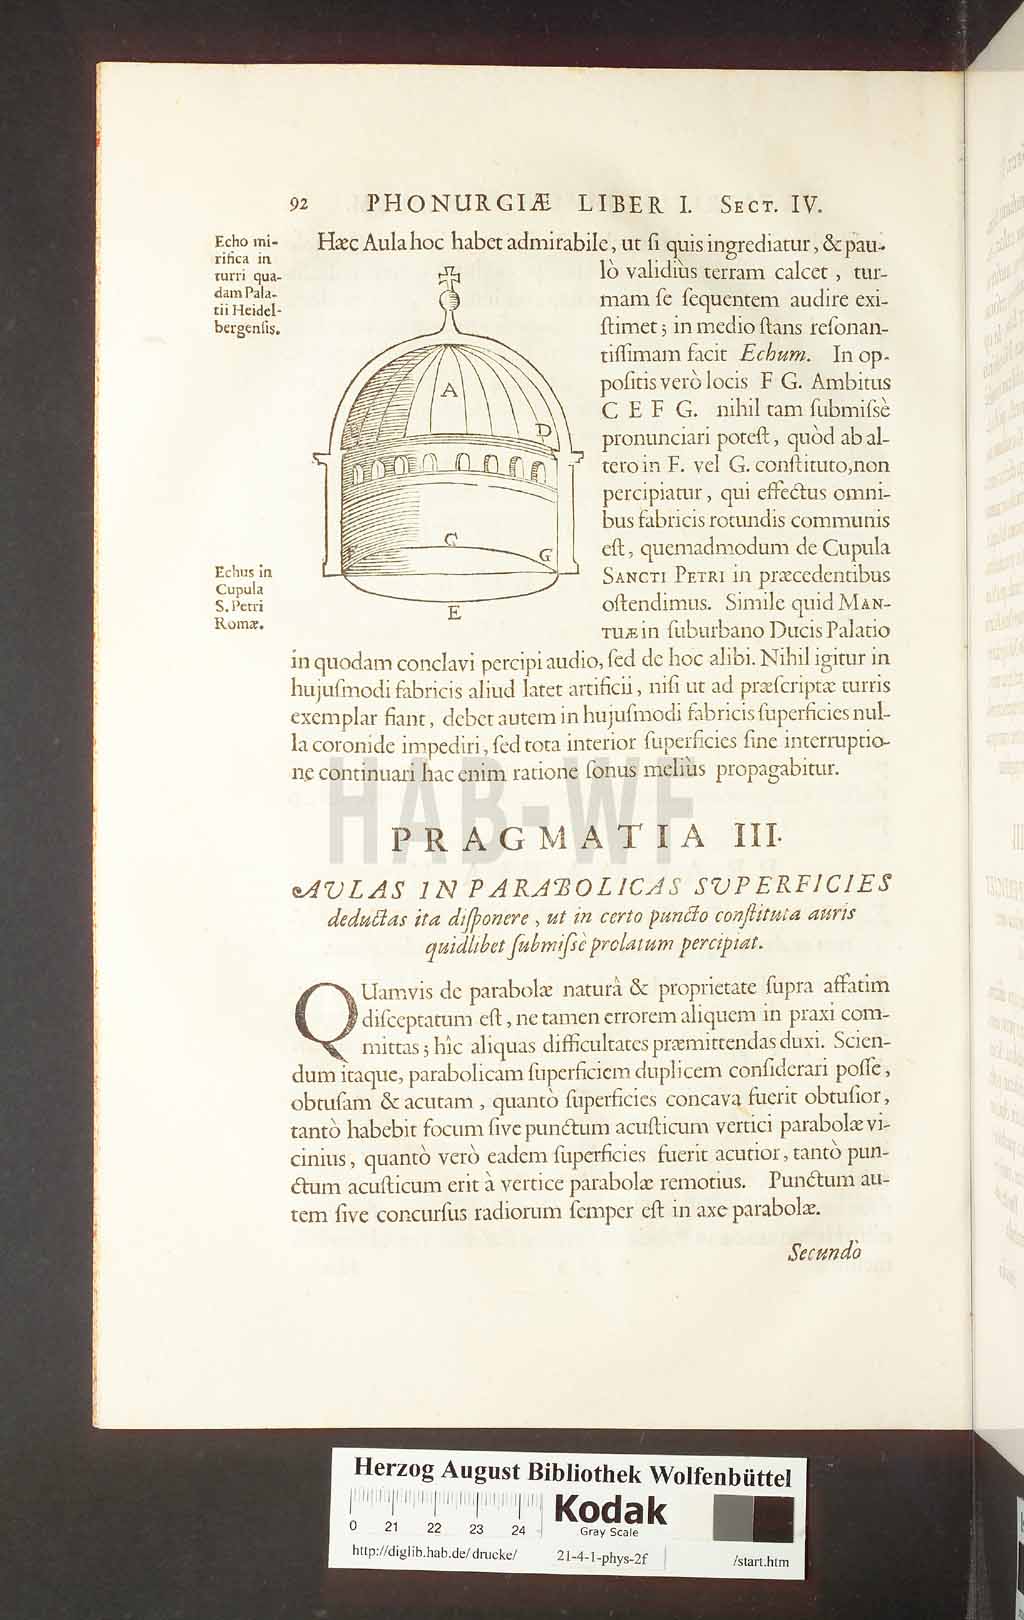 92 PHONURGIÆ LIBER I. SECT. IV.
Echo mi-
rifica in
turri qua-
dam Pala-
tii Heidel-
bergenſis.
Hæc Aula hoc habet admirabile, ut ſi quis ingrediatur, & pau-
lò validiùs terram calcet, tur-
mam ſe ſequentem audire exi-
ſtimet; in medio ſtans reſonan-
tiſſimam facit Echum. In op-
poſitis verò locis F G. Ambitus
C E F G. nihil tam ſubmiſsè
pronunciari poteſt, quòd ab al-
tero in F. vel G. conſtituto, non
percipiatur, qui effectus omni-
bus fabricis rotundis communis
eſt, quemadmodum de Cupula
SANCTI PETRI in præcedentibus
oſtendimus. Simile quid MAN-
TUÆ in ſuburbano Ducis Palatio
A
D
C
G
E
Echus in
Cupula
S. Petri
Romæ.
in quodam conclavi percipi audio, ſed de hoc alibi. Nihil igitur in
hujuſmodi fabricis aliud latet artificii, niſi ut ad præſcriptæ turris
exemplar fiant, debet autem in hujuſmodi fabricis ſuperficies nul-
la coronide impediri, ſed tota interior ſuperficies ſine interruptio-
ne continuari hac enim ratione ſonus meliùs propagabitur.
HAB-WF
PRAGMATIA III.
AVLAS IN PARABOLICAS SVPERFICIES
deductas ita diſponere, ut in certo puncto conſtituta auris
quidlibet ſubmiſsè prolatum percipiat.
QUamvis de parabolæ naturâ & proprietate ſupra affatim
diſceptatum eſt, ne tamen errorem aliquem in praxi com-
mittas; hîc aliquas difficultates præmittendas duxi. Scien-
dum itaque, parabolicam ſuperficiem duplicem conſiderari poſſe,
obtuſam & acutam, quantò ſuperficies concava fuerit obtuſior,
tantò habebit focum ſive punctum acuſticum vertici parabolæ vi-
cinius, quantò verò eadem ſuperficies fuerit acutior, tantò pun-
ctum acuſticum erit à vertice parabolæ remotius. Punctum au-
tem ſive concurſus radiorum ſemper eſt in axe parabolæ.
Secundò
Herzog August Bibliothek Wolfenbüttel
0 21 22 23 24
Kodak
Gray Scale
http://diglib.hab.de/drucke/ 21-4-1-phys-2f /start.htm